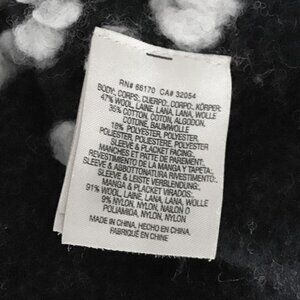 RN# 66170 CA# 32054
BODY, CORPS, CUERPO, CORPO, KÖRPER:
47% WOOL, LAINE, LANA, LANA, WOLLE
35% COTTON, COTON, ALGODON,
COTONE, BAUMWOLLE
18% POLYESTER, POLYESTER,
POLIESTER, POLIESTERE, POLYESTER
SLEEVE & PLACKET FACING:
MANCHES ET PATTE DE PAREMENT:
REVESTIMIENTO DE LA MANGA Y TAPETA:
SLEEVE & ABBOTTONATURA RIVESTIMENTO:
SLEEVE & LEISTE VERBLENDUNG:
MANGA & PLACKET VIRADOS:
91% WOOL, LAINE, LANA, LANA, WOLLE
9% NYLON, NYLON, NAILON O
POLIAMIDA, NYLON, NYLON
MADE IN CHINA, HECHO EN CHINA,
FABRIQUÉ EN CHINE